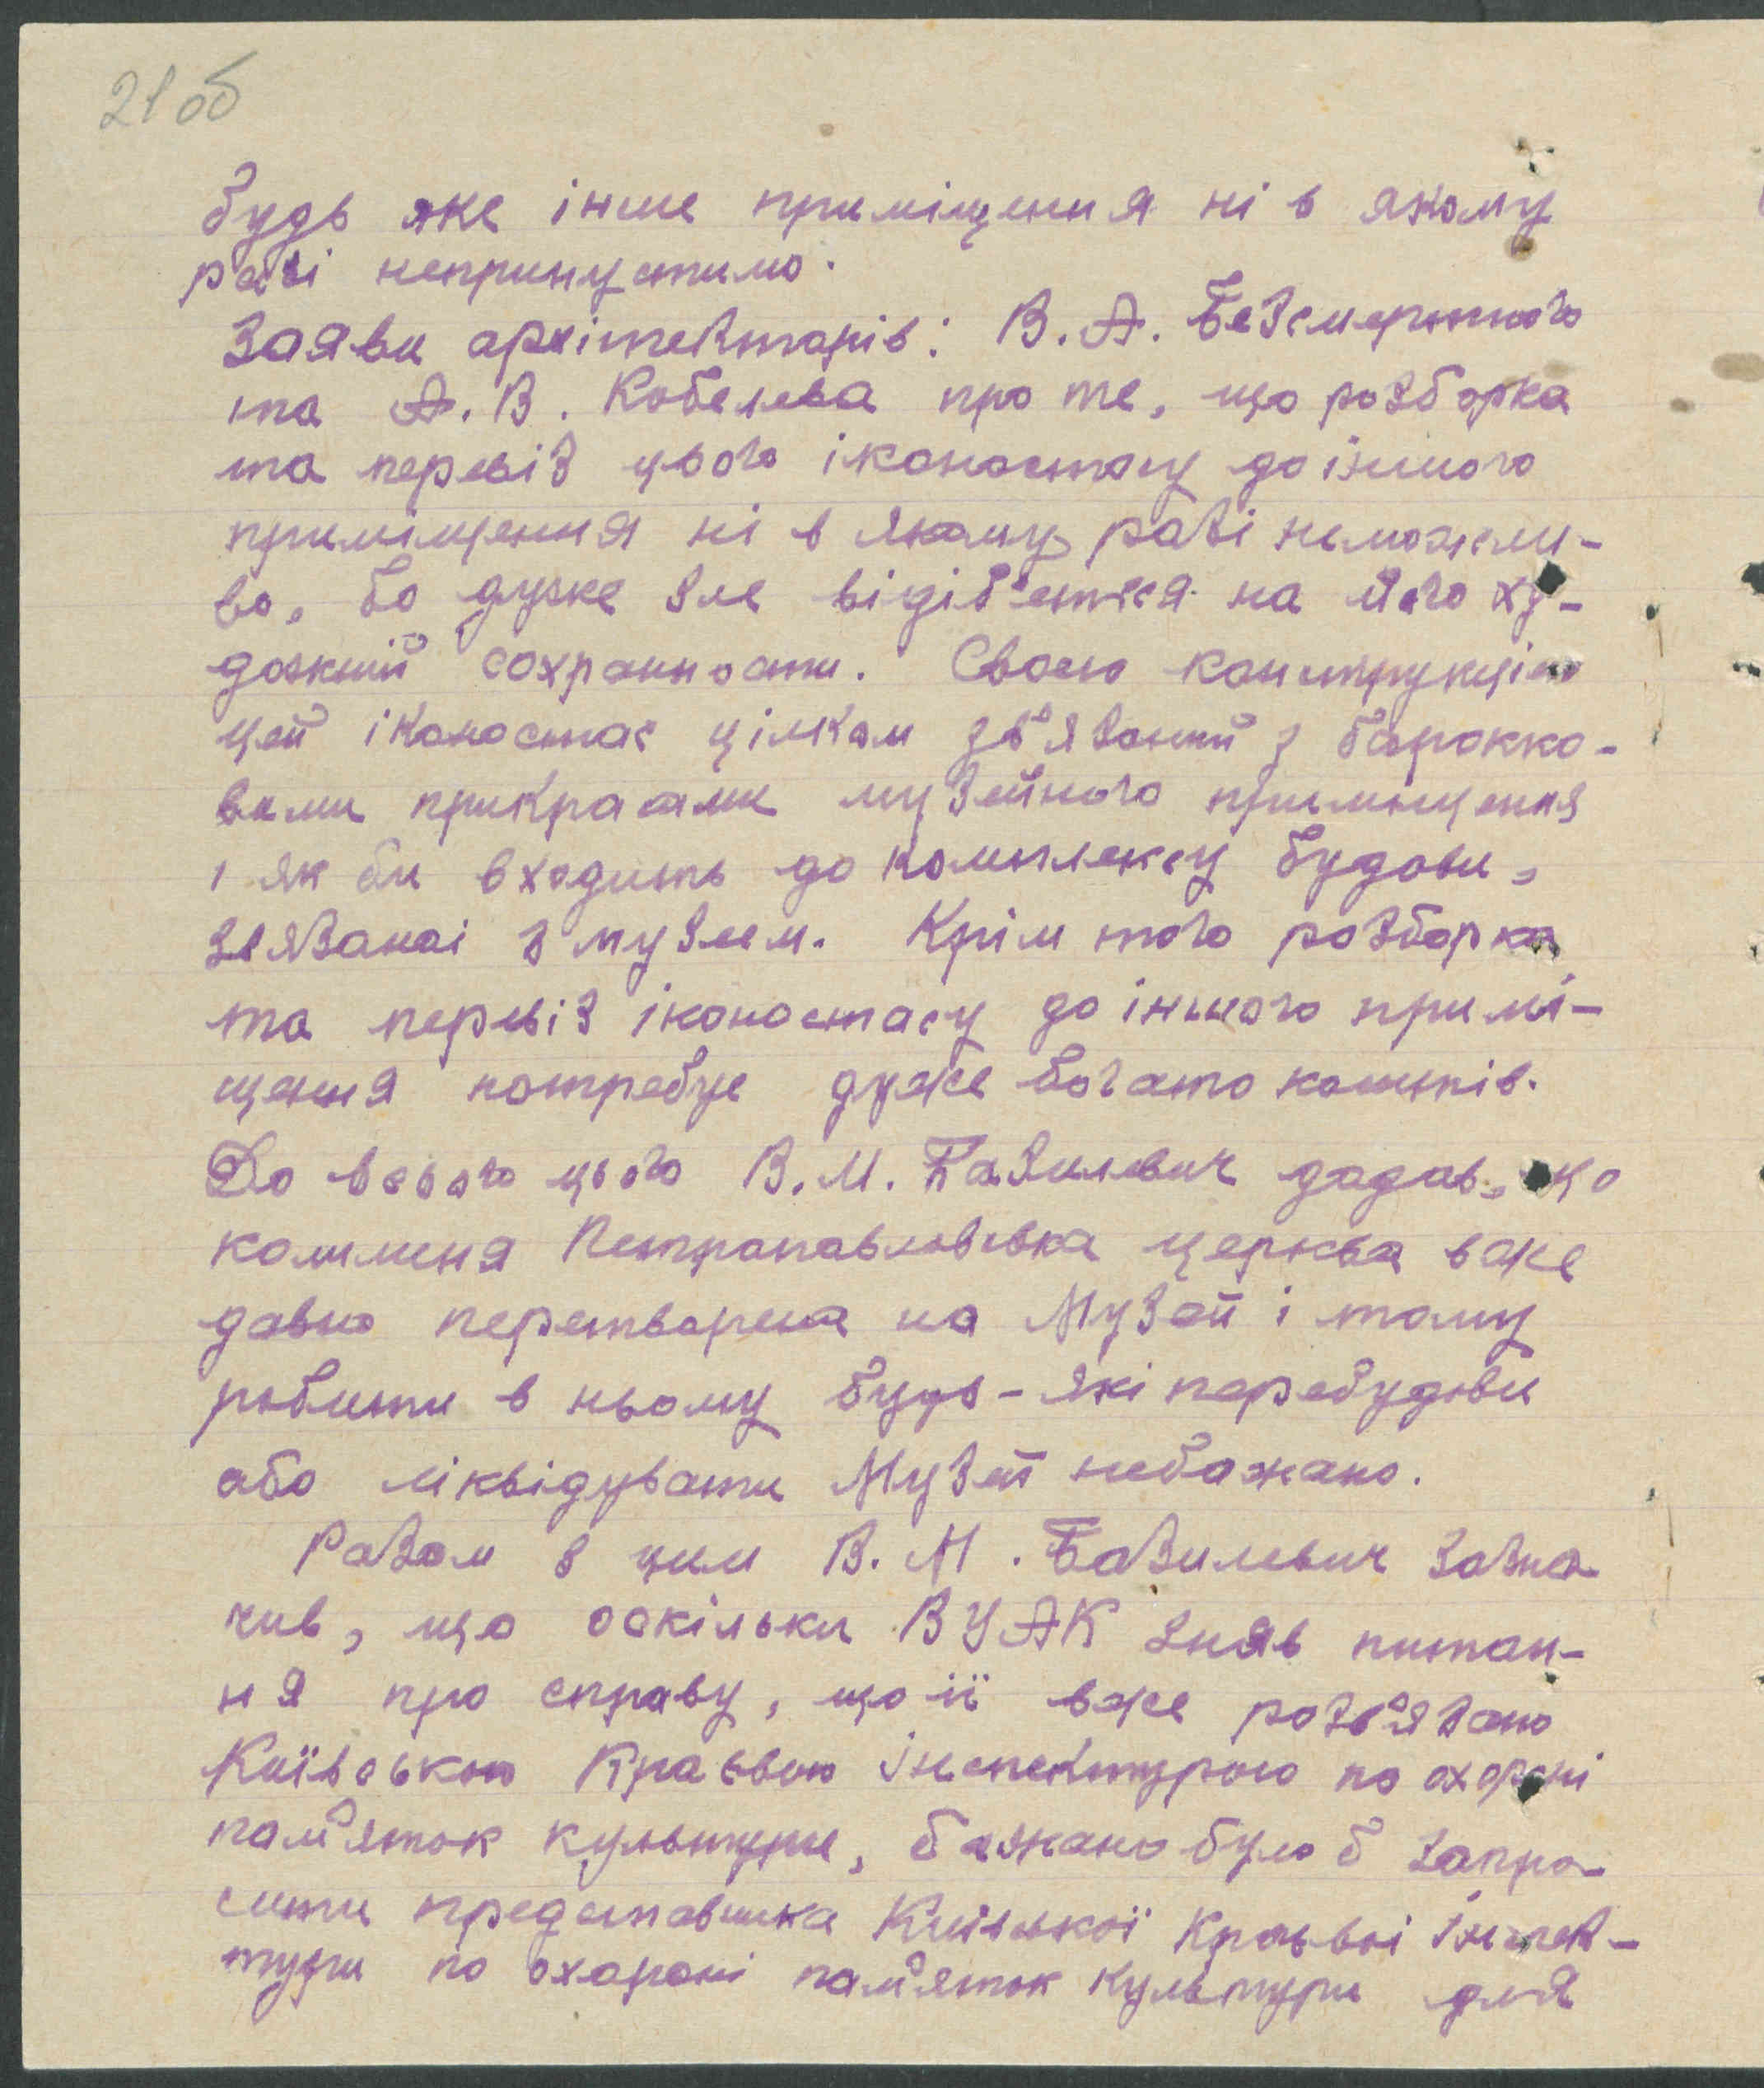 21 об
будь яке інше приміщення ні в якому
разі неприпустимо.
Заяви архітекторів: В. А. Безсмертного
та А. В. Кобелєва про те, що розборка
та перевіз цього іконостасу до іншого
приміщення ні в якому разі неможли-
во, бо дуже зле відіб'ється на його ху-
дожній сохранности. Своєю конструкцією
цей іконостас цілком зв'язаний з барокко-
вими прикрасами музейного приміщення
і як би входить до комплексу будови,
звязаноі з музеєм. Крім того розборка
та перевіз іконостасу до іншого примі-
щення потребує дуже богато коштів.
До всього цього В. М. Базилевич додав, що
колишня Петропавловська церква вже
давно перетворена на Музей і тому
робити в ньому будь-які перебудови
або ліквідувати Музей небажано.
Разом з цим В. М. Базилевич зазна-
чив, що оскільки ВУАК зняв питан-
ня про справу, що її вже розв'язано
Київською Краєвою Інспектурою по охороні
пам'яток культури, бажано було б запро-
сити представника Київської Краєвоі Інспек-
тури по охороні пам'яток культури для